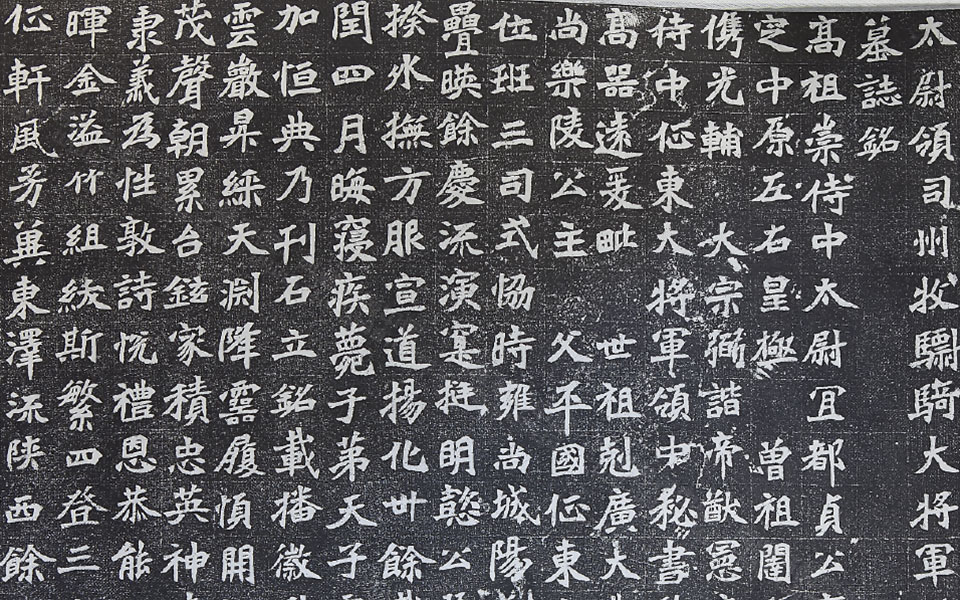 太尉領司州牧驃騎大將軍
墓誌銘
高祖崇侍中太尉宜都貞公
定中原左右皇極 曾祖闓
儁光輔 大宗弼諧帝猷
侍中征東大將軍領中秘書
高器遠爰毗 世祖剋廣大
尚樂陵公主 父平國征東
位班三司式協時雍尚城陽
疊暎餘慶流演寔挺明懿公
揆水撫方服宣道揚化卅餘
閏四月晦寢疾薨子弟天子
加恒典乃刊石立銘載播徽
雲巖昇綵天淵降靈履慎開
茂聲朝累台鉉家積忠英神
秉義為性敦詩悅禮恩恭能
暉金溢竹組綬斯繁四登三
征軒風芳冀東澤流陝西餘